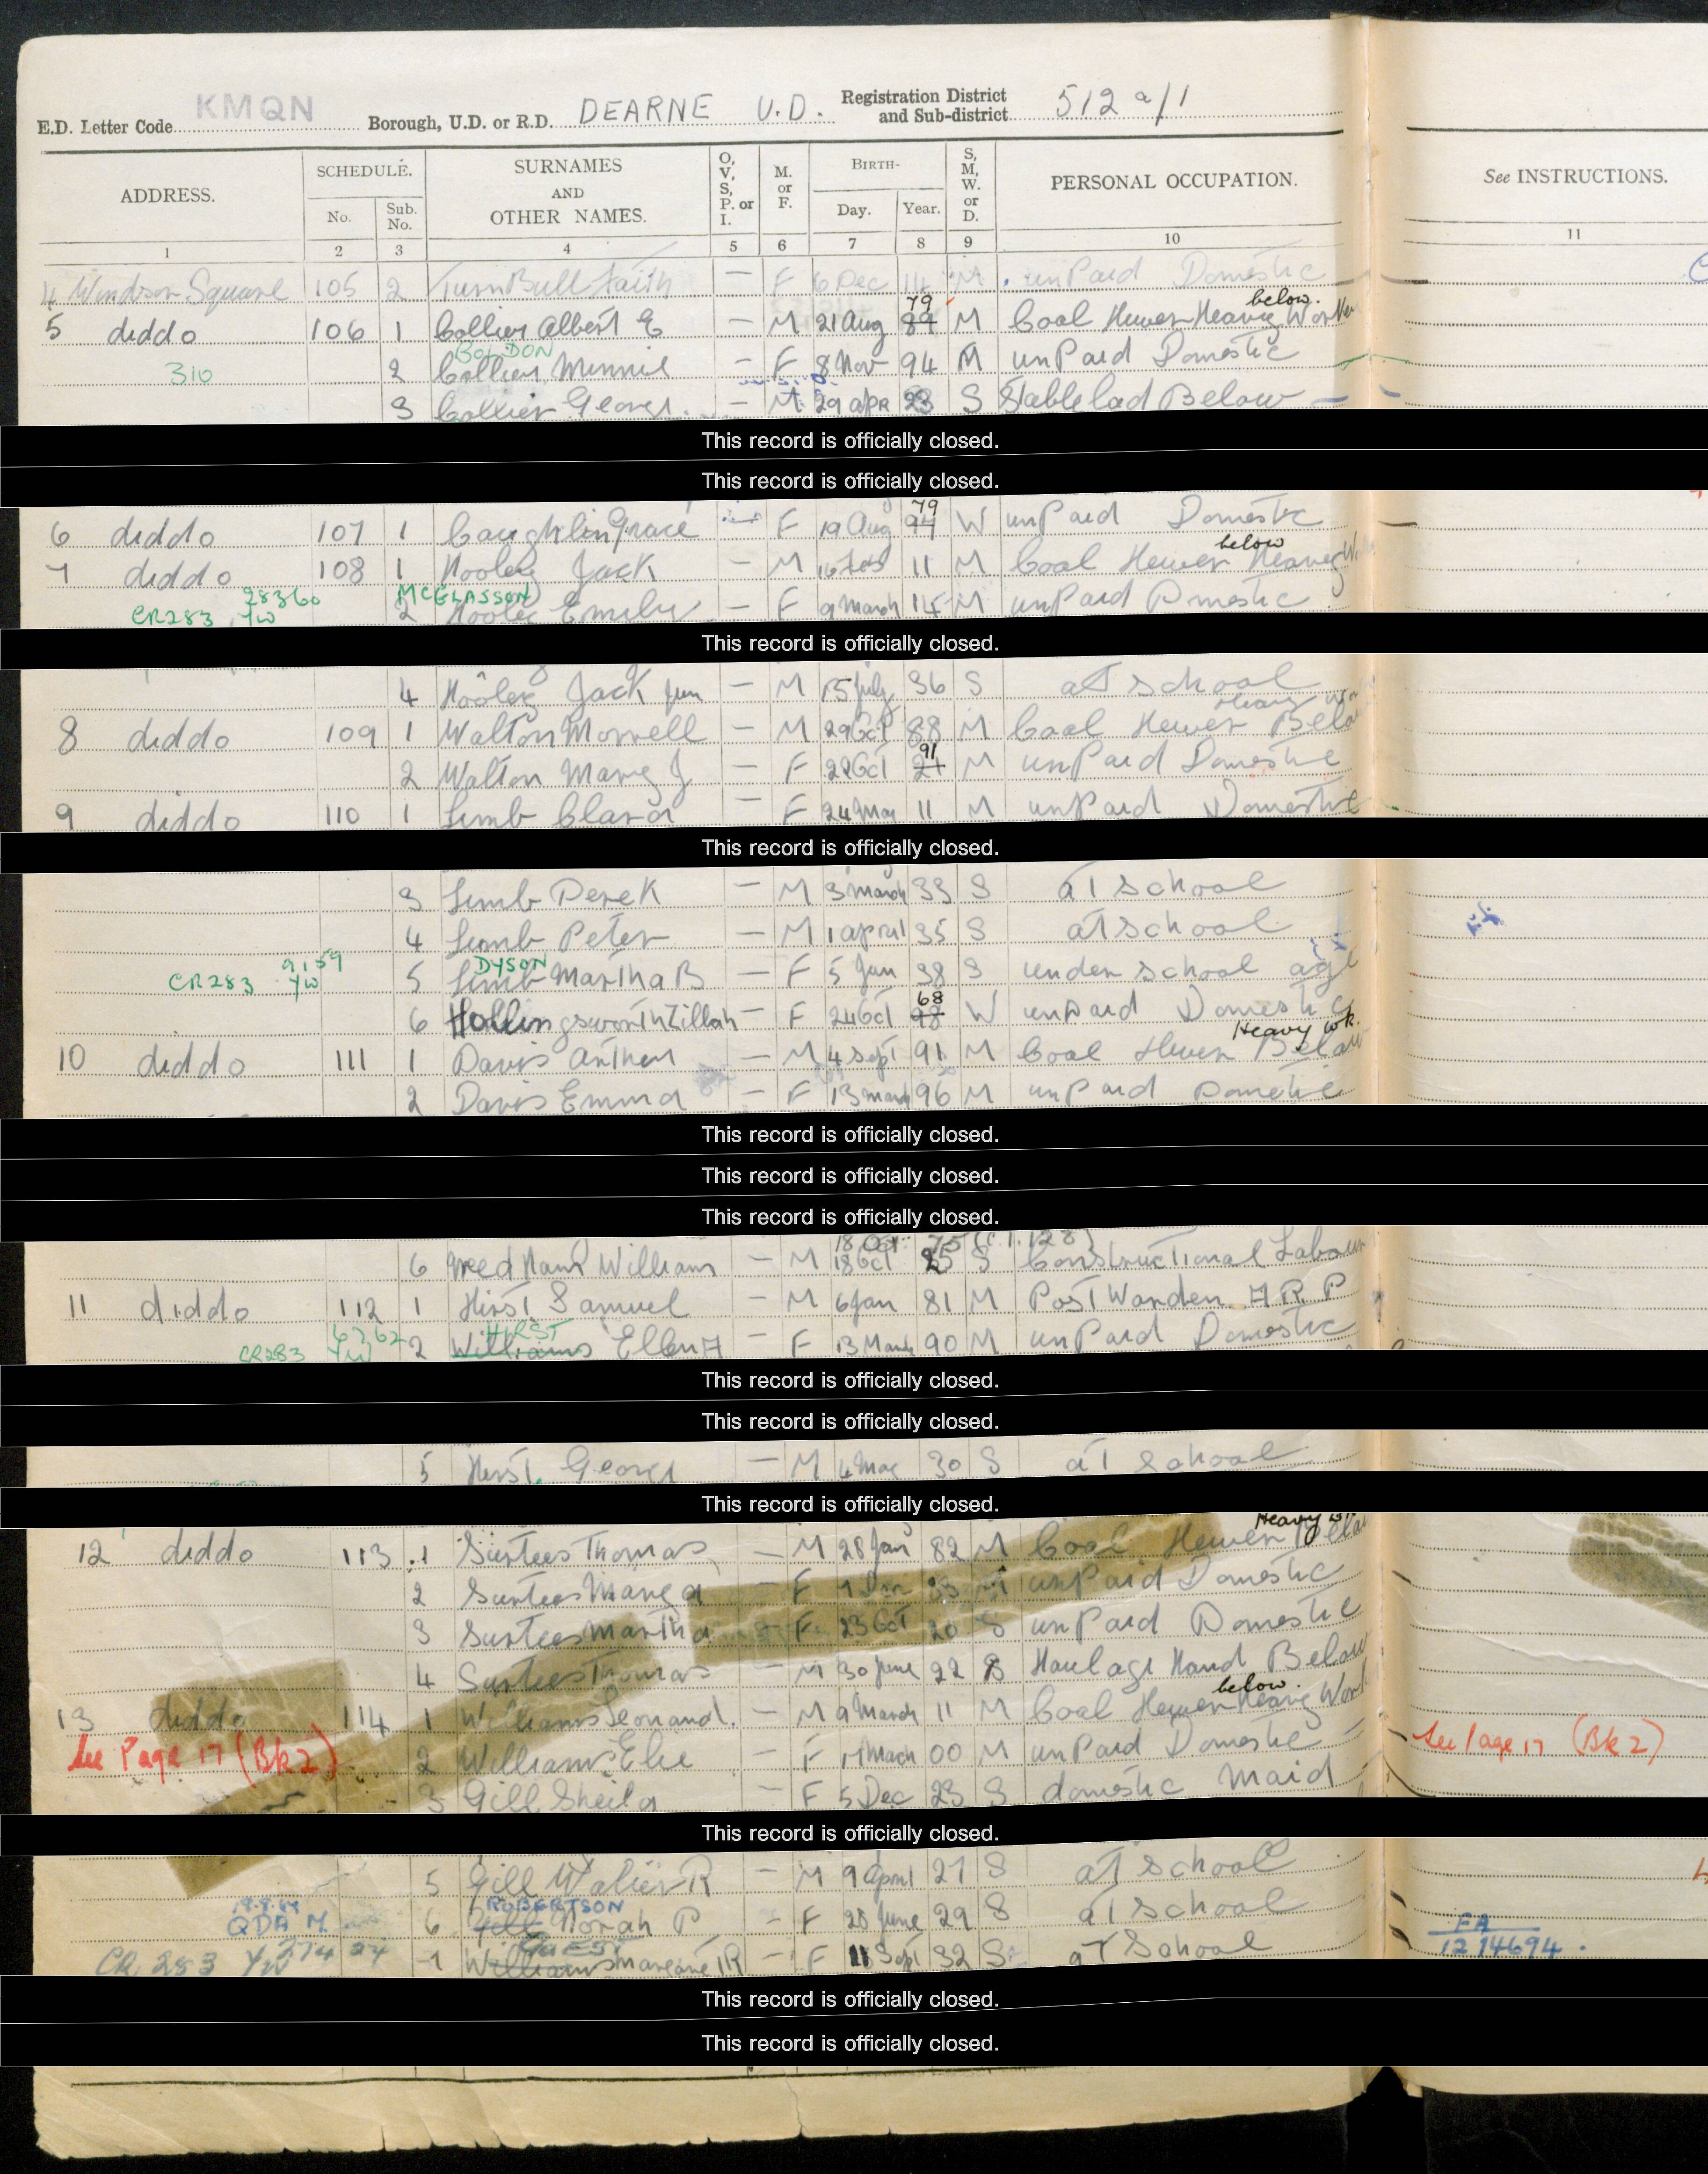 E.D. Letter Code KMQN Borough, U.D. or R.D. DEARNE U.D. Registration District and Sub-district 512 a/1
ADDRESS. SCHEDULE. No. Sub. No. SURNAMES AND OTHER NAMES. O, V, S, P. or I. M. or F. BIRTH- Day. Year. S, M, W. or D. PERSONAL OCCUPATION. See INSTRUCTIONS.
1 2 3 4 5 6 7 8 9 10 11
4 Windsor Square 105 2 TurnBull Faith — F 6 Dec 14 M unPaid Domestic
79 below.
5 diddo 106 1 Collier Albert E — M 21 Aug 84 M Coal Hewer Heavy Worker
BOLDON
310 2 Collier Minnie — F 8 Nov 94 M unPaid Domestic
3 Collier George — M 29 apr 23 S Stable lad Below —
This record is officially closed.
This record is officially closed.
79
6 diddo 107 1 Caughlin Grace F 19 Aug 94 W unPaid Domestic
below
7 diddo 108 1 Hooley Jack — M 16 Feb 11 M Coal Hewer Heavy
28360 MCGLASSON
CR283 YW 2 Hooley Emily — F 9 March 15 M unPaid Domestic
This record is officially closed.
4 Hooley Jack jun — M 15 July 36 S at school
Heavy
8 diddo 109 1 Walton Morrell — M 29 Oct 88 M Coal Hewer Below
91
2 Walton Mary J — F 28 Oct 21 M unPaid Domestic
9 diddo 110 1 Limb Clara — F 24 May 11 M unPaid Domestic
This record is officially closed.
3 Limb Derek — M 3 March 33 S at school
4 Limb Peter — M 1 april 35 S at school
9159 DYSON
CR283 YW 5 Limb Martha B — F 5 Jan 38 S under school age
68
6 Hollingsworth Zillah — F 24 Oct 98 W unPaid Domestic
Heavy wk.
10 diddo 111 1 Davis Arther — M 4 Sept 91 M Coal Hewer Below
2 Davis Emma — F 13 march 96 M unPaid Domestic
This record is officially closed.
This record is officially closed.
This record is officially closed.
18 Oct 75
6 Needham William — M 18 Oct 25 S Constructional Labour
11 diddo 112 1 Hirst Samuel — M 6 Jan 81 M Post Warden A R P
6762 HIRST
CR283 YW 2 Williams Ellen A — F 13 March 90 M unPaid Domestic
This record is officially closed.
This record is officially closed.
5 Hirst George — M 4 May 30 S at school
This record is officially closed.
Heavy
12 diddo 113 1 Surtees Thomas — M 28 Jan 82 M Coal Hewer Below
2 Surtees Mary a — F Dec M unPaid Domestic
3 Surtees Martha — F 23 Oct 20 S unPaid Domestic
4 Surtees Thomas — M 30 June 22 S Haulage Hand Below
below.
13 diddo 114 1 Williams Leonard. — M 9 March 11 M Coal Hewer Heavy Work
See Page 17 (Bk 2) 2 Williams — F 00 M unPaid Domestic See Page 17 (Bk 2)
3 Gill Sheila — F 5 Dec 23 S domestic Maid
This record is officially closed.
5 Gill Walter R — M 9 April 27 S at school
ROBERTSON
QDA M. 6 Gill Norah P — F 28 June 29 S at school FA
GUEST
CR 283 YW 7 Williams Margaret R — F 11 Sept 32 S at School 1214694.
This record is officially closed.
This record is officially closed.